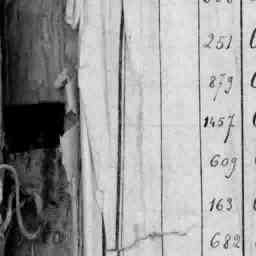 251
879
1457
609
163
682